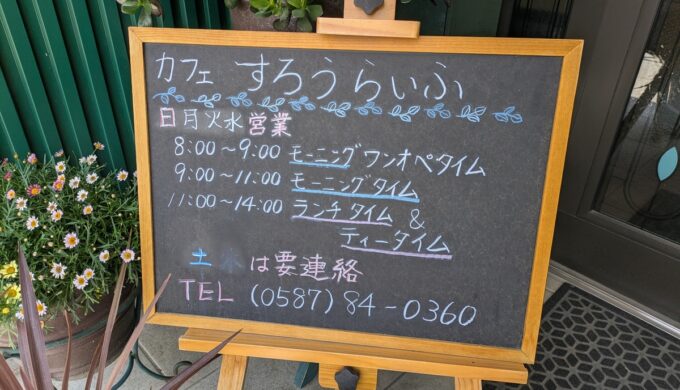 カフェ すろうらいふ
日月火水営業
8:00～9:00 モーニングワンオペタイム
9:00～11:00 モーニングタイム
11:00～14:00 ランチタイム &
ティータイム
土 は要連絡
TEL (0587) 84-0360